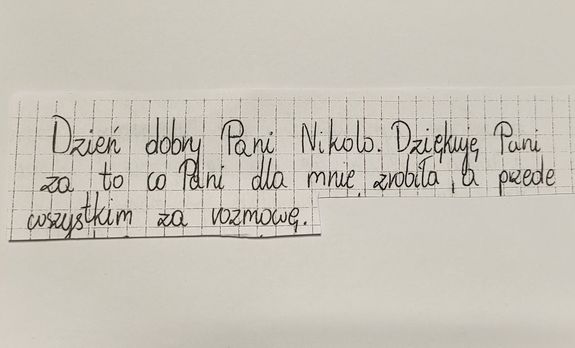 Dzień dobry Pani Nikolo. Dziękuję Pani
za to co Pani dla mnie zrobiła, a przede
wszystkim za rozmowę.